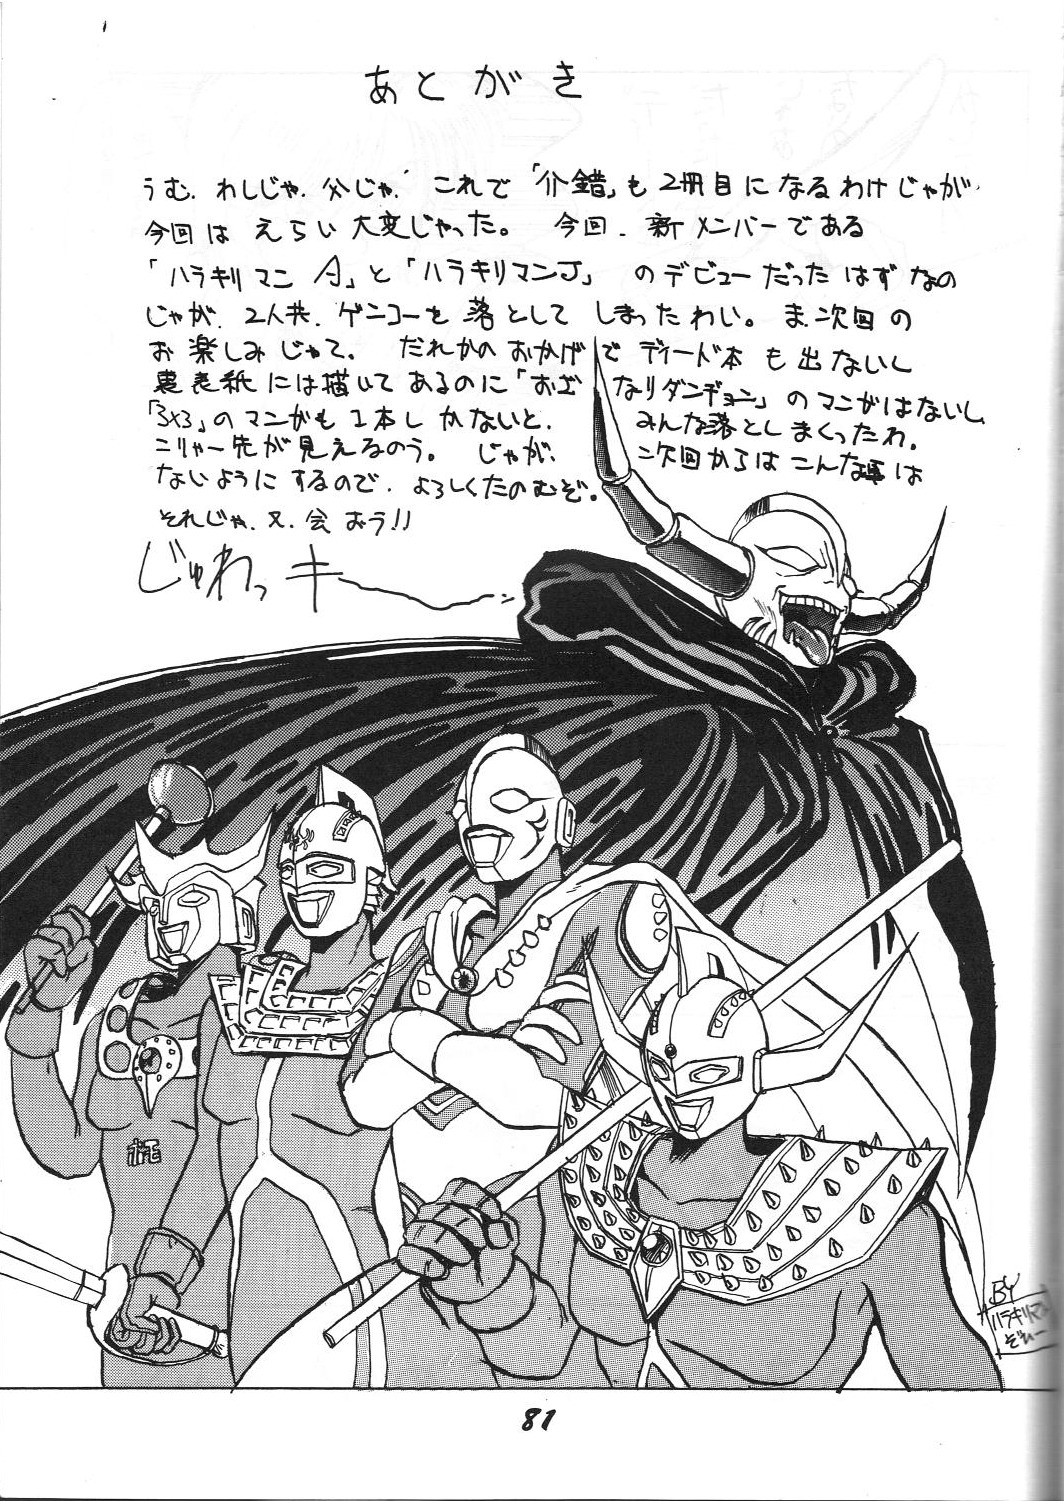 あとがき
うむ、わしじゃ、父じゃ、これで「介錯」も2冊目になるわけじゃが、
今回はえらい大変じゃった。 今回、新メンバーである
「ハラキリマンA」と「ハラキリマンJ」のデビューだったはずなの
じゃが、2人共、ゲンコーを落としてしまったわい。ま、次回の
お楽しみじゃて。 だれかのおかげでディード本も出ないし
裏表紙には描いてあるのに「おざなりダンヂョン」のマンガはないし、
「3×3」のマンガも1本しかないと、みんな落としまくったわ。
こりゃー先が見えるのう。 じゃが、次回からはこんな事は
ないようにするので、よろしくたのむぞ。
それじゃ、又、会おう!!
じゅわっキー
ホモ
BY
ハラキリマン
ぞぃー
81